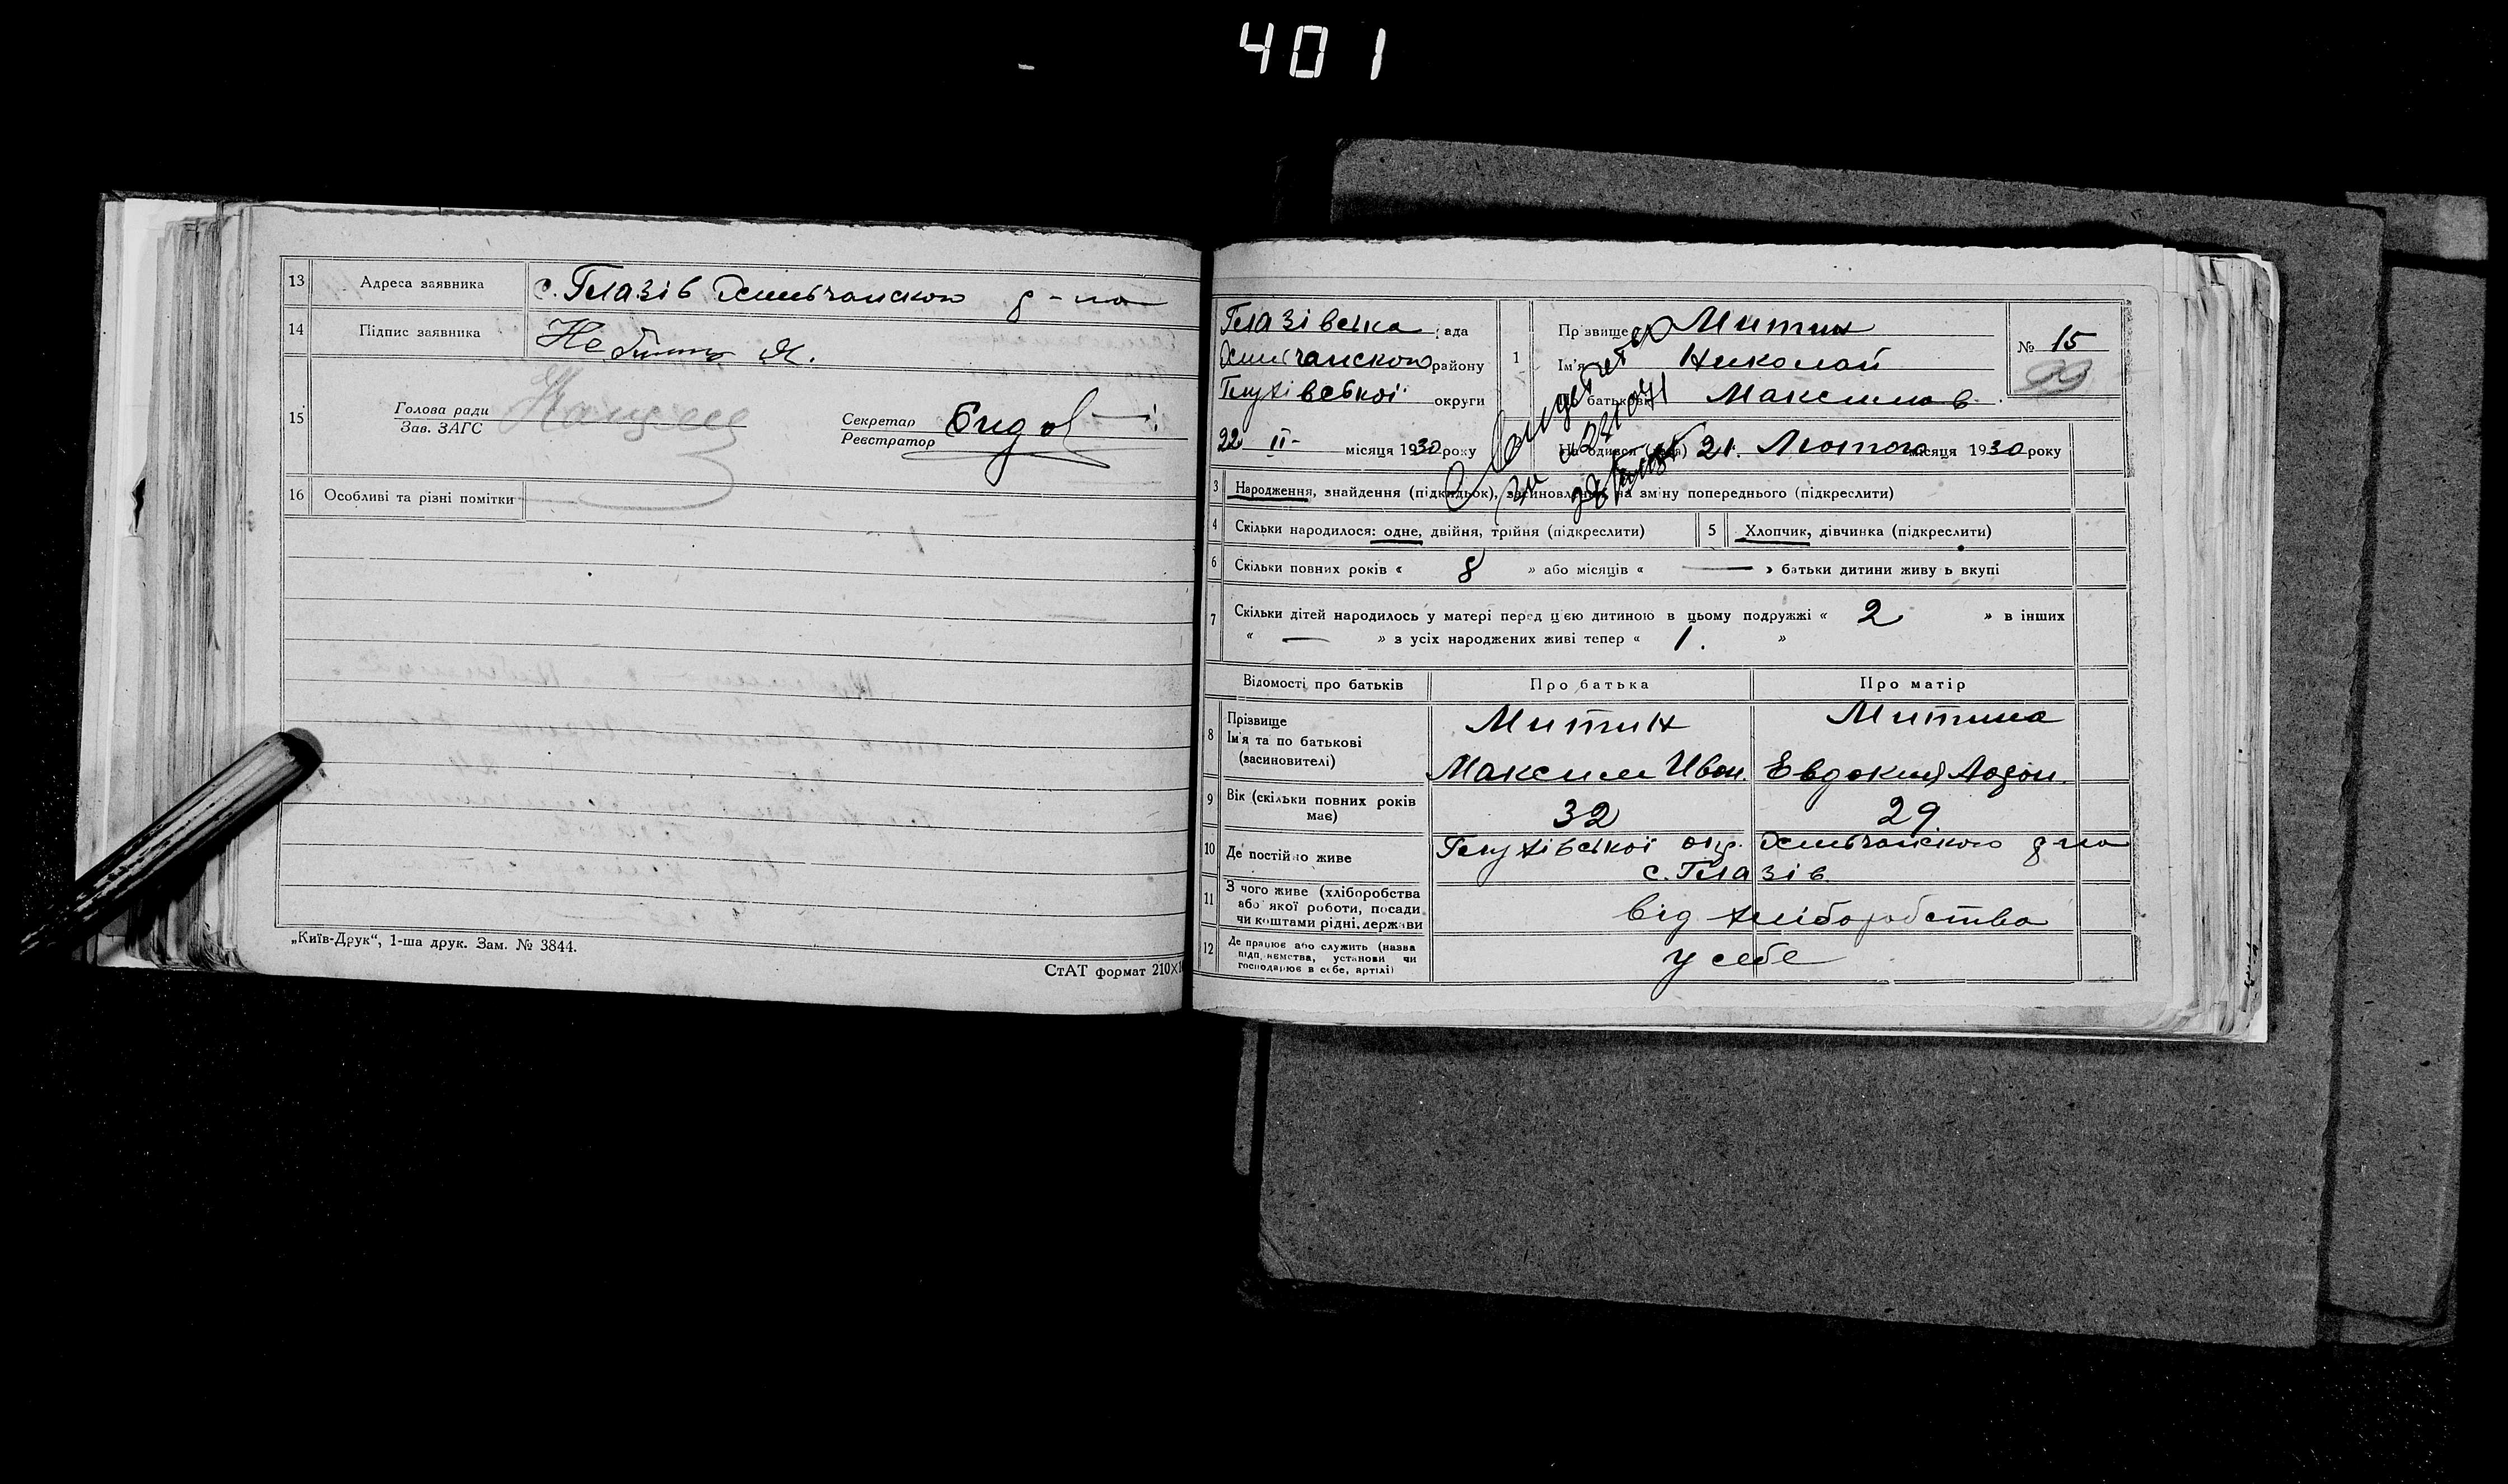 401
13 Адреса заявника с. Глазів Хильчанского р-на
14 Підпис заявника
15 Голова ради
Зав. ЗАГС
Секретар
Реєстратор
16 Особливі та різні помітки
„Київ-Друк“, 1-ша друк. Зам. № 3844.
СтАТ формат 210×1
Глазівська рада
Хильчанского району
Глухівської округи
22 II- місяця 1930 року
1 Прізвище Митин
Ім'я Николай
батькові Максимов
№ 15
Народився (лась) 21. Лютого місяця 1930 року
3 Народження, знайдення (підкидьок), засиновлення, на зміну попереднього (підкреслити)
4 Скільки народилося: одне, двійня, трійня (підкреслити)
5 Хлопчик, дівчинка (підкреслити)
6 Скільки повних років « 8 » або місяців « — » батьки дитини живуть вкупі
7 Скільки дітей народилось у матері перед цією дитиною в цьому подружжі « 2 » в інших
« — » з усіх народжених живі тепер « 1. »
Відомості про батьків Про батька Про матір
8 Прізвище Митин Митина
Ім'я та по батькові
(засиновителі) Максим Иван. Евдокия
9 Вік (скільки повних років
має) 32 29
10 Де постійно живе Глухівської окр. Хильчанского р-на
с. Глазів
11 З чого живе (хліборобства
або якої роботи, посади
чи коштами рідні, держави від хліборобства
12 Де працює або служить (назва
підприємства, установи чи
господарює в себе, артілі) у себе